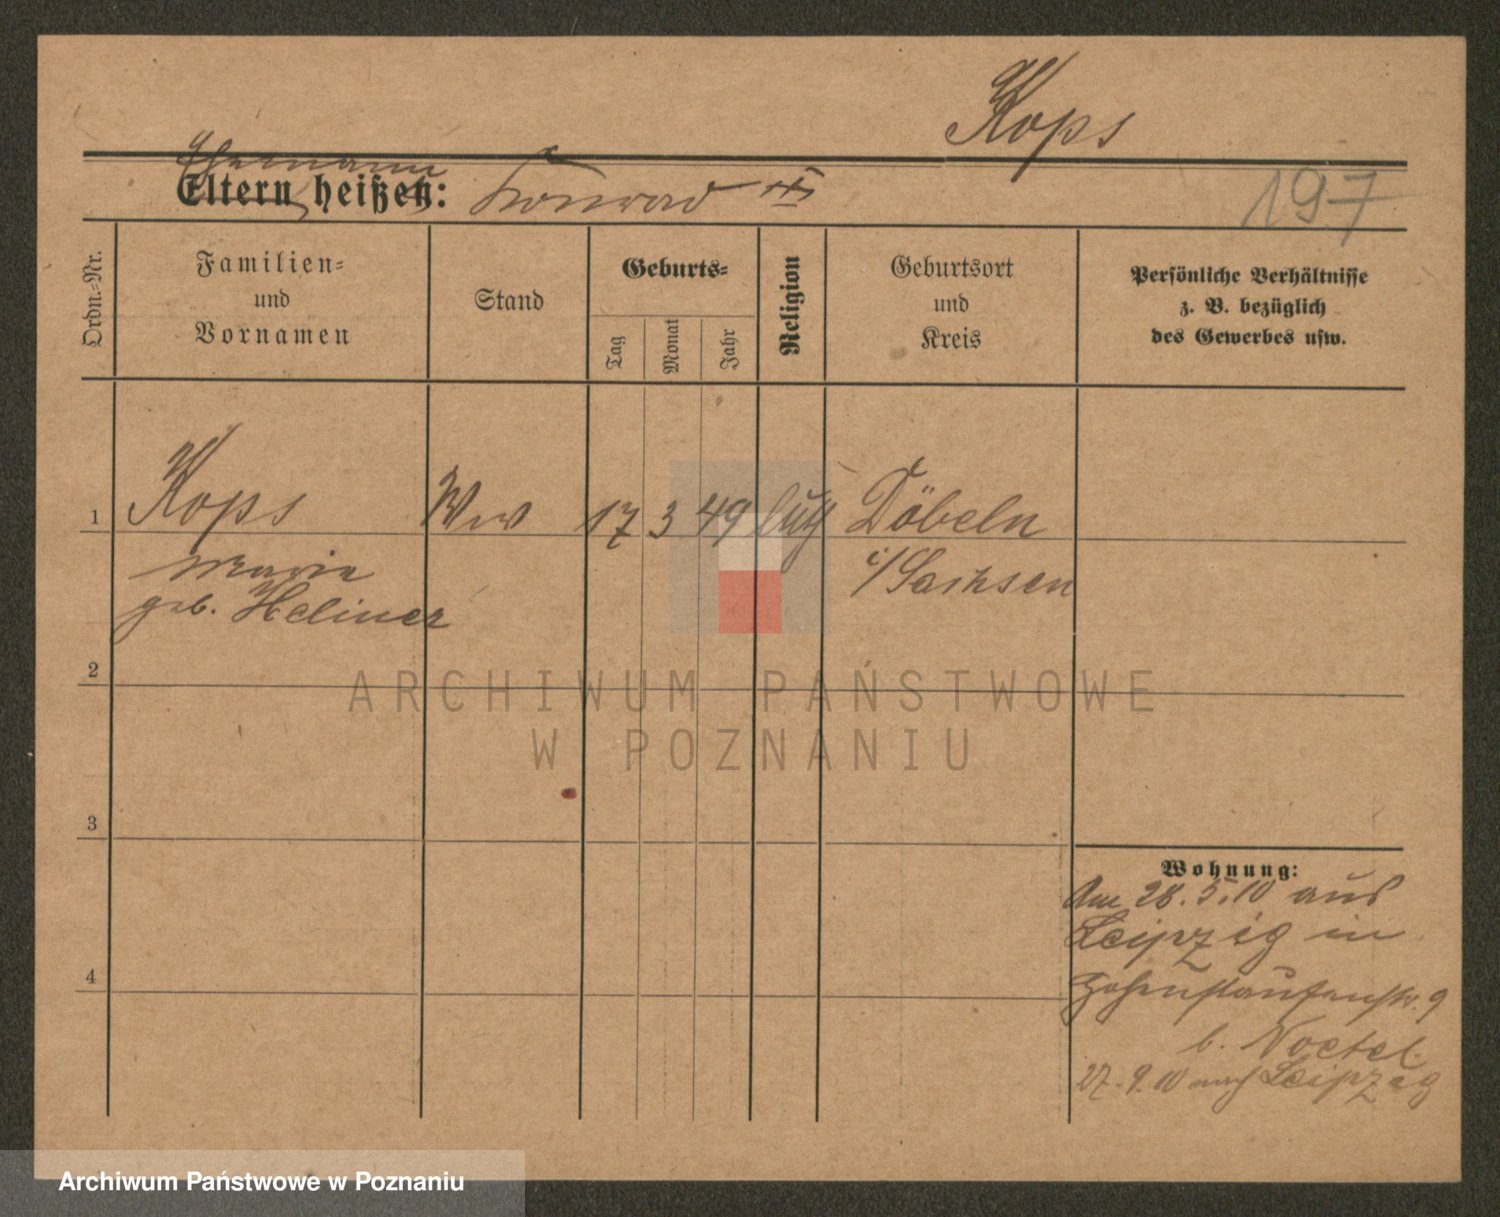 Kops
Ehemann
Eltern heißen: Konrad
197
Ordn.-Nr.
Familien-
und
Vornamen
Stand
Geburts-
Tag
Monat
Jahr
Religion
Geburtsort
und
Kreis
Persönliche Verhältnisse
z. B. bezüglich
des Gewerbes usw.
1
Kops
Ww
17
3
49
Döbeln
Marie
i/Sachsen
geb.
2
ARCHIWUM PAŃSTWOWE
W POZNANIU
3
Wohnung:
Am 28.5.10 aus
Leipzig in
4
Hohenstaufenstr. 9
b. Noetel.
27.9.10 nach Leipzig
Archiwum Państwowe w Poznaniu